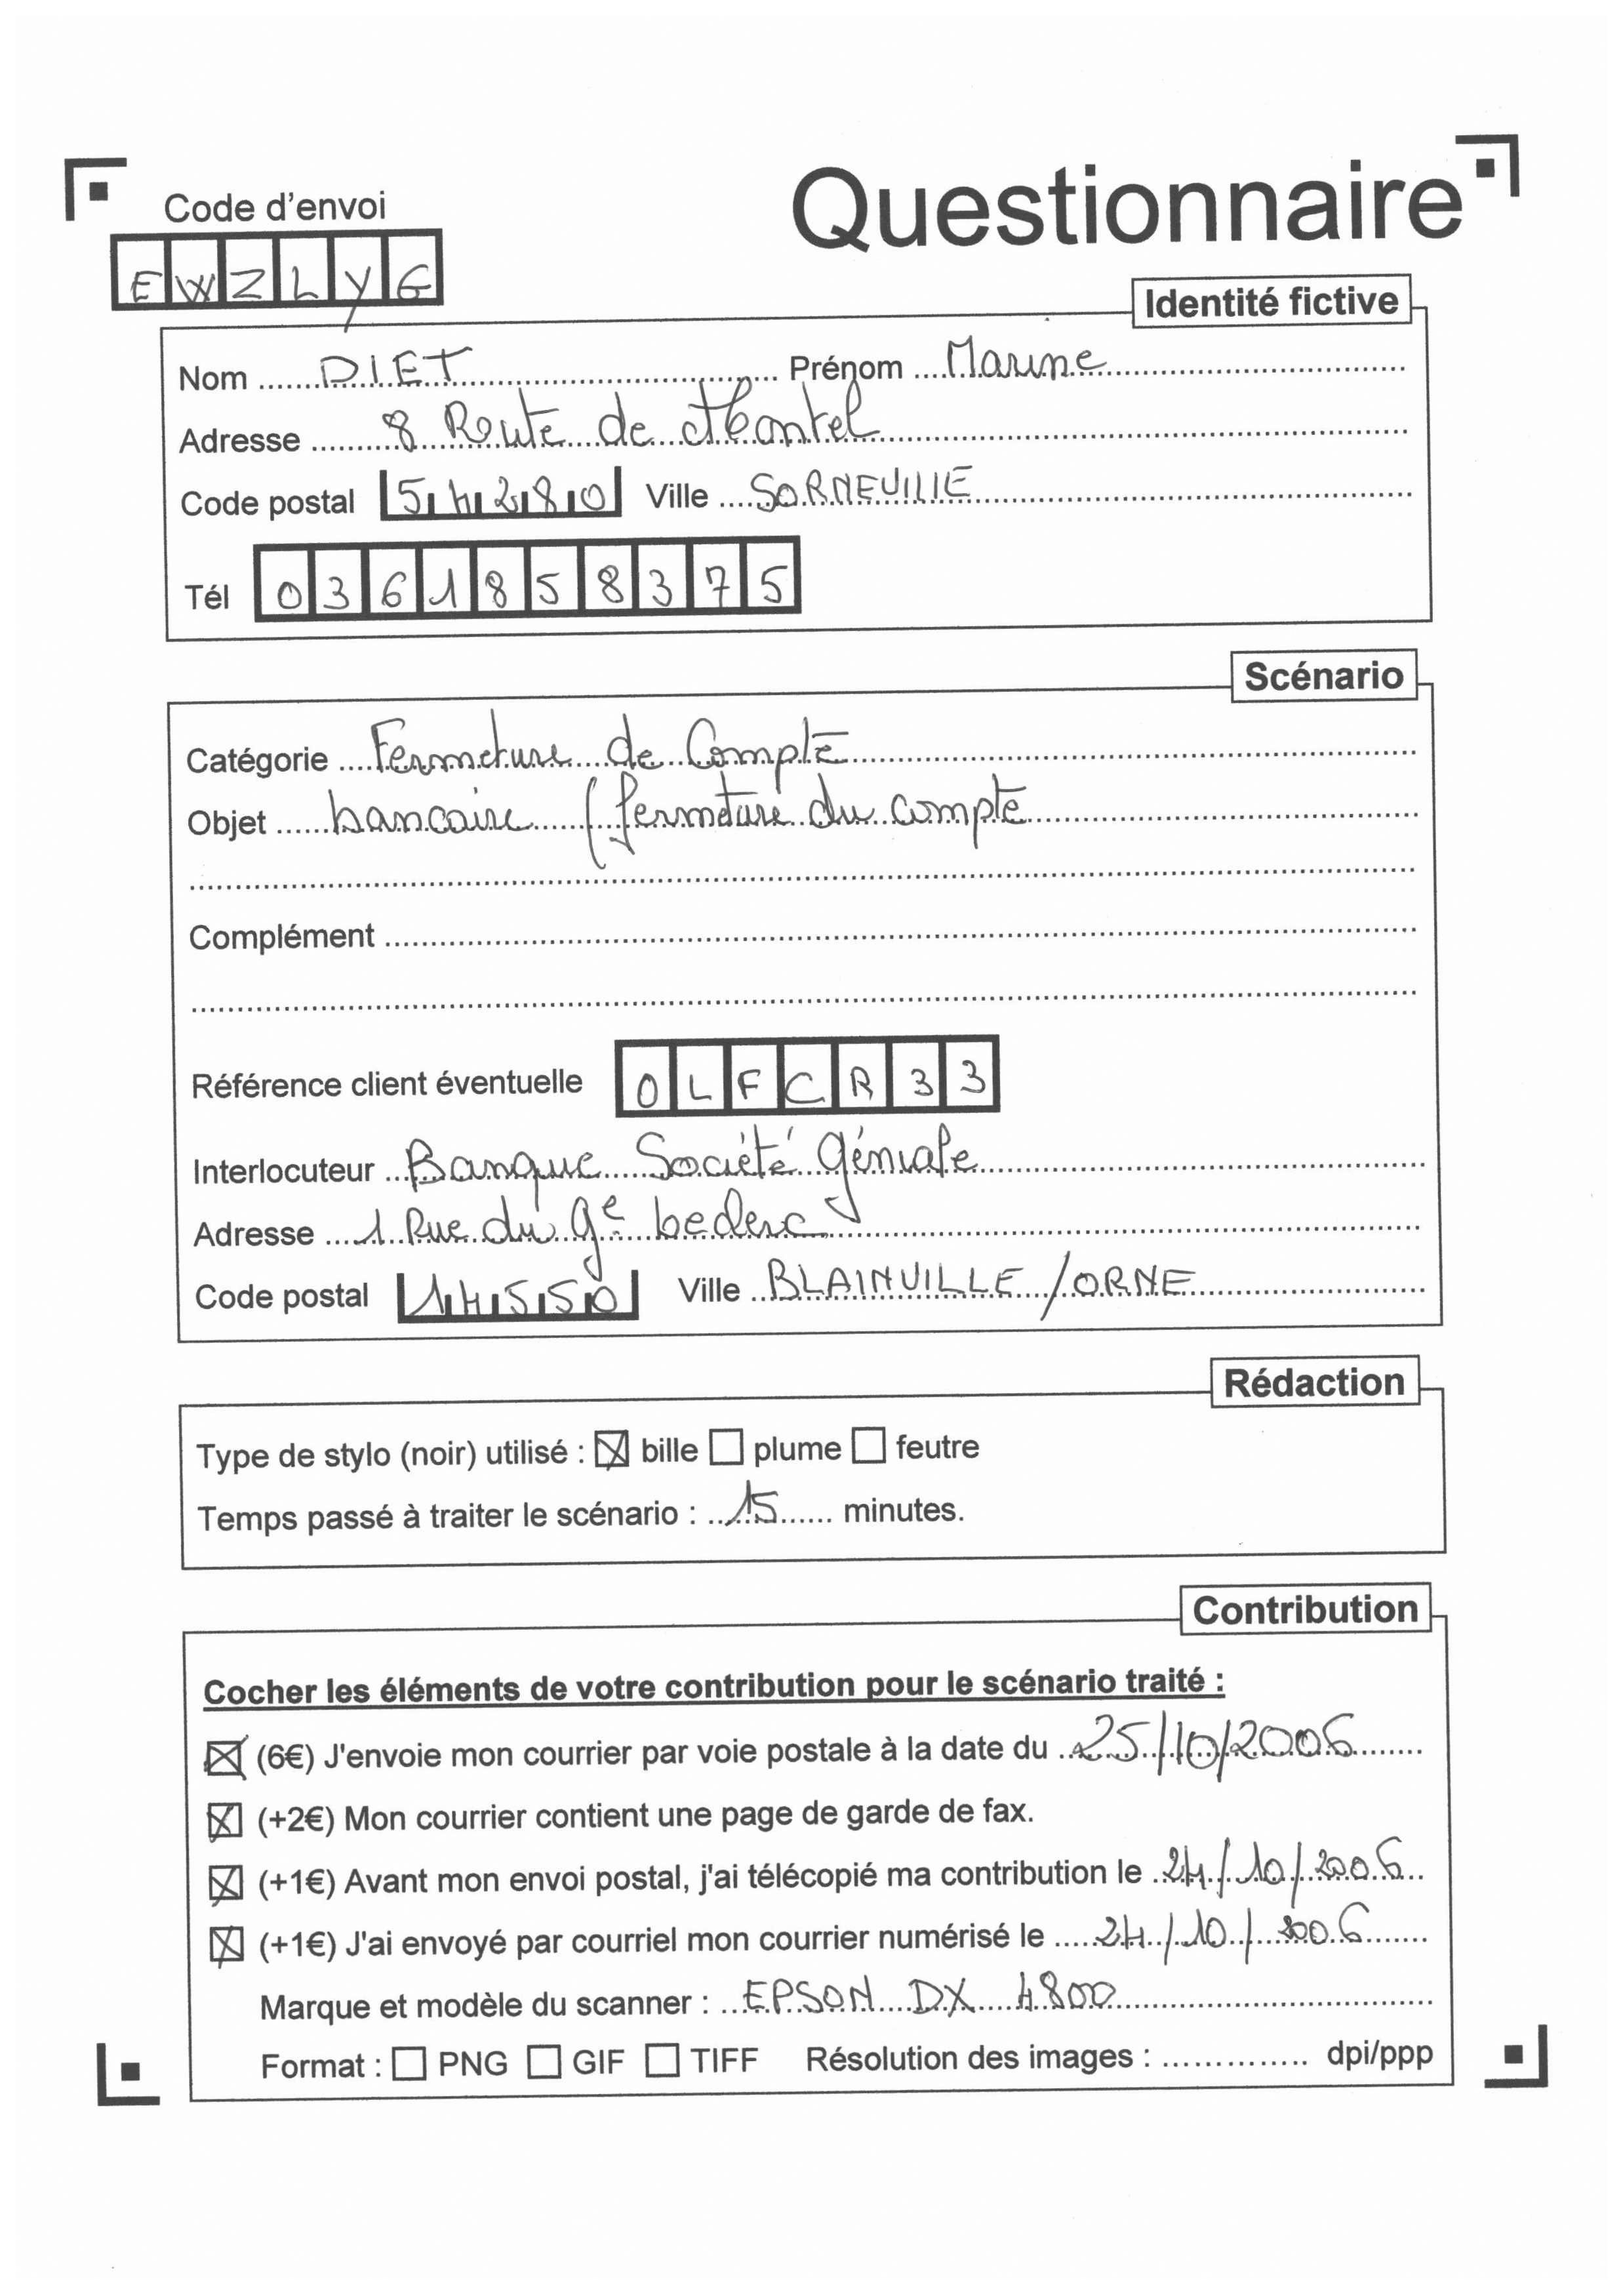 Questionnaire
Code d'envoi
EWZLYG
Identité fictive
Nom DIET Prénom Marine
Adresse 8 Route de
Code postal 54280 Ville SORNEVILLE
Tél 0361858375
Scénario
Catégorie Fermeture de Compte
Objet bancaire (fermeture du compte
Complément
Référence client éventuelle OLFCR33
Interlocuteur Banque Société géniale
Adresse 1 Rue du ge Leclerc
Code postal 14550 Ville BLAINVILLE / ORNE
Rédaction
Type de stylo (noir) utilisé : ☒ bille ☐ plume ☐ feutre
Temps passé à traiter le scénario : 15 minutes.
Contribution
Cocher les éléments de votre contribution pour le scénario traité :
☒ (6€) J'envoie mon courrier par voie postale à la date du 25/10/2006
☒ (+2€) Mon courrier contient une page de garde de fax.
☒ (+1€) Avant mon envoi postal, j'ai télécopié ma contribution le 24/10/2006
☒ (+1€) J'ai envoyé par courriel mon courrier numérisé le 24/10/2006
Marque et modèle du scanner : EPSON DX 4800
Format : ☐ PNG ☐ GIF ☐ TIFF Résolution des images : .............. dpi/ppp